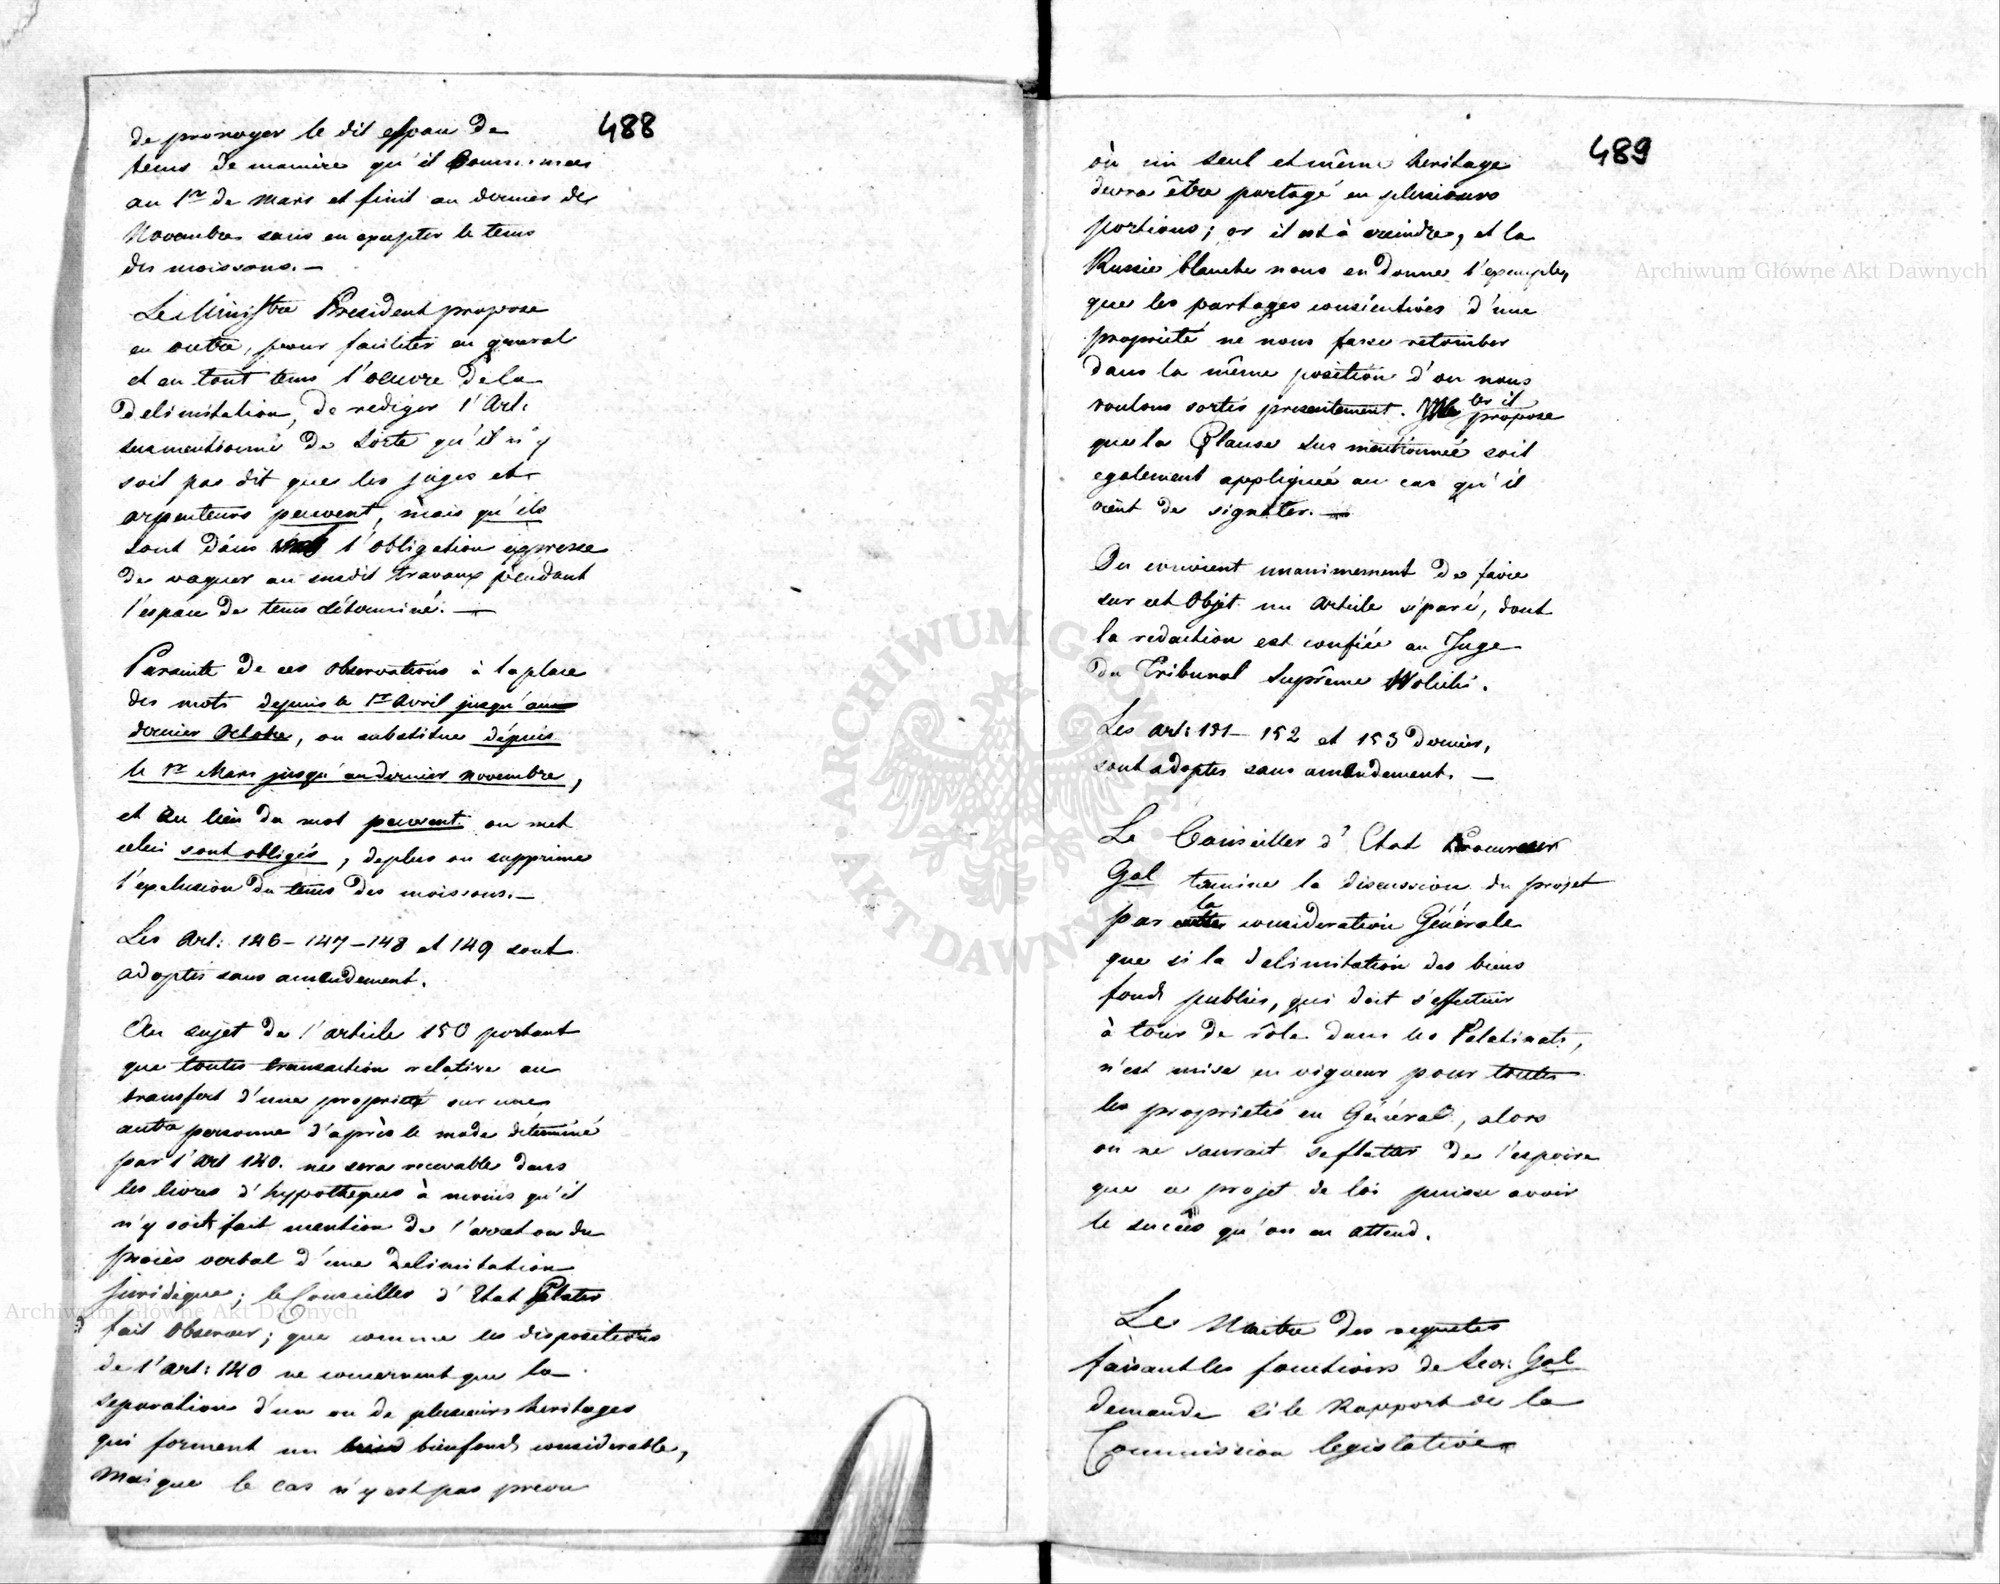 488
de proroger le dit espace de
tems de manière qu'il commence
au 1er de Mars et finit au dernier de
Novembre sans en excepter le tems
des moissons. —
Le Ministre President propose
en outre, pour faciliter en general
et en tout tems l'oeuvre de la
delimitation, de rediger l'Art:
susmentionné de sorte qu'il n'y
soit pas dit que les juges et
arpenteurs peuvent, mais qu'ils
sont dans l'obligation expresse
de vaquer au susdit travaux pendant
l'espace de tems déterminé. —
Parsuite de ces observations à la place
des mots depuis le 1er Avril jusqu'au
dernier Octobre, on substitue dépuis
le 1er Mars jusqu'au dernier novembre,
et au lieu du mot peuvent on met
celui sont obligés, deplus on supprime
l'exclusion du tems des moissons. —
Les Art: 146 – 147 – 148 et 149 sont
adoptés sans amendement.
Au sujet de l'article 150 portant
que toutes transaction relative au
transfert d'une proprieté sur une
autre personne d'après le mode déterminé
par l'Art 140. ne sera recevable dans
les livres d'hypotheques à moins qu'il
n'y soit fait mention de l'arret ou du
procès verbal d'une delimitation
juridique; le Conseiller d'Etat Plater
fait observer; que comme les dispositions
de l'Art: 140 ne concernent que la
separation d'un ou de plusieurs heritages
qui forment un bienfonds considerable,
mais que le cas n'y est pas prevu
489
où un seul et même heritage
devra être partagé en plusieurs
portions; or il est à creindre, et la
Russie blanche nous en donne l'exemple,
que les partages consécutives d'une
proprieté ne nous fasse retomber
dans la même position d'ou nous
voulons sortir presentement. il propose
que la Clause sus mentionnée soit
egalement appliquée au cas qu'il
vient de signaler. —
On convient unanimement de faire
sur cet Objet un Article séparé, dont
la redaction est confiée au Juge
du Tribunal Suprême Wolicki.
Les Art: 151 – 152 et 153 dernier,
sont adoptés sans amendement. —
Le Conseiller d'Etat Procureur
Gal termine la discussion du projet
par la consideration Générale
que si la delimitation des biens
fonds publics, qui doit s'effectuer
à tour de rôle dans les Palatinats,
n'est mise en vigueur pour toutes
les proprietés en Général, alors
on ne saurait se flatter de l'espoire
que ce projet de loi puisse avoir
le succès qu'on en attend.
Le Maitre des requetes
faisant les fonctions de Secr: Gal
demande si le Rapport de la
Commission legislative
Archiwum Główne Akt Dawnych
Archiwum Główne Akt Dawnych
ARCHIWUM GŁÓWNE AKT DAWNYCH